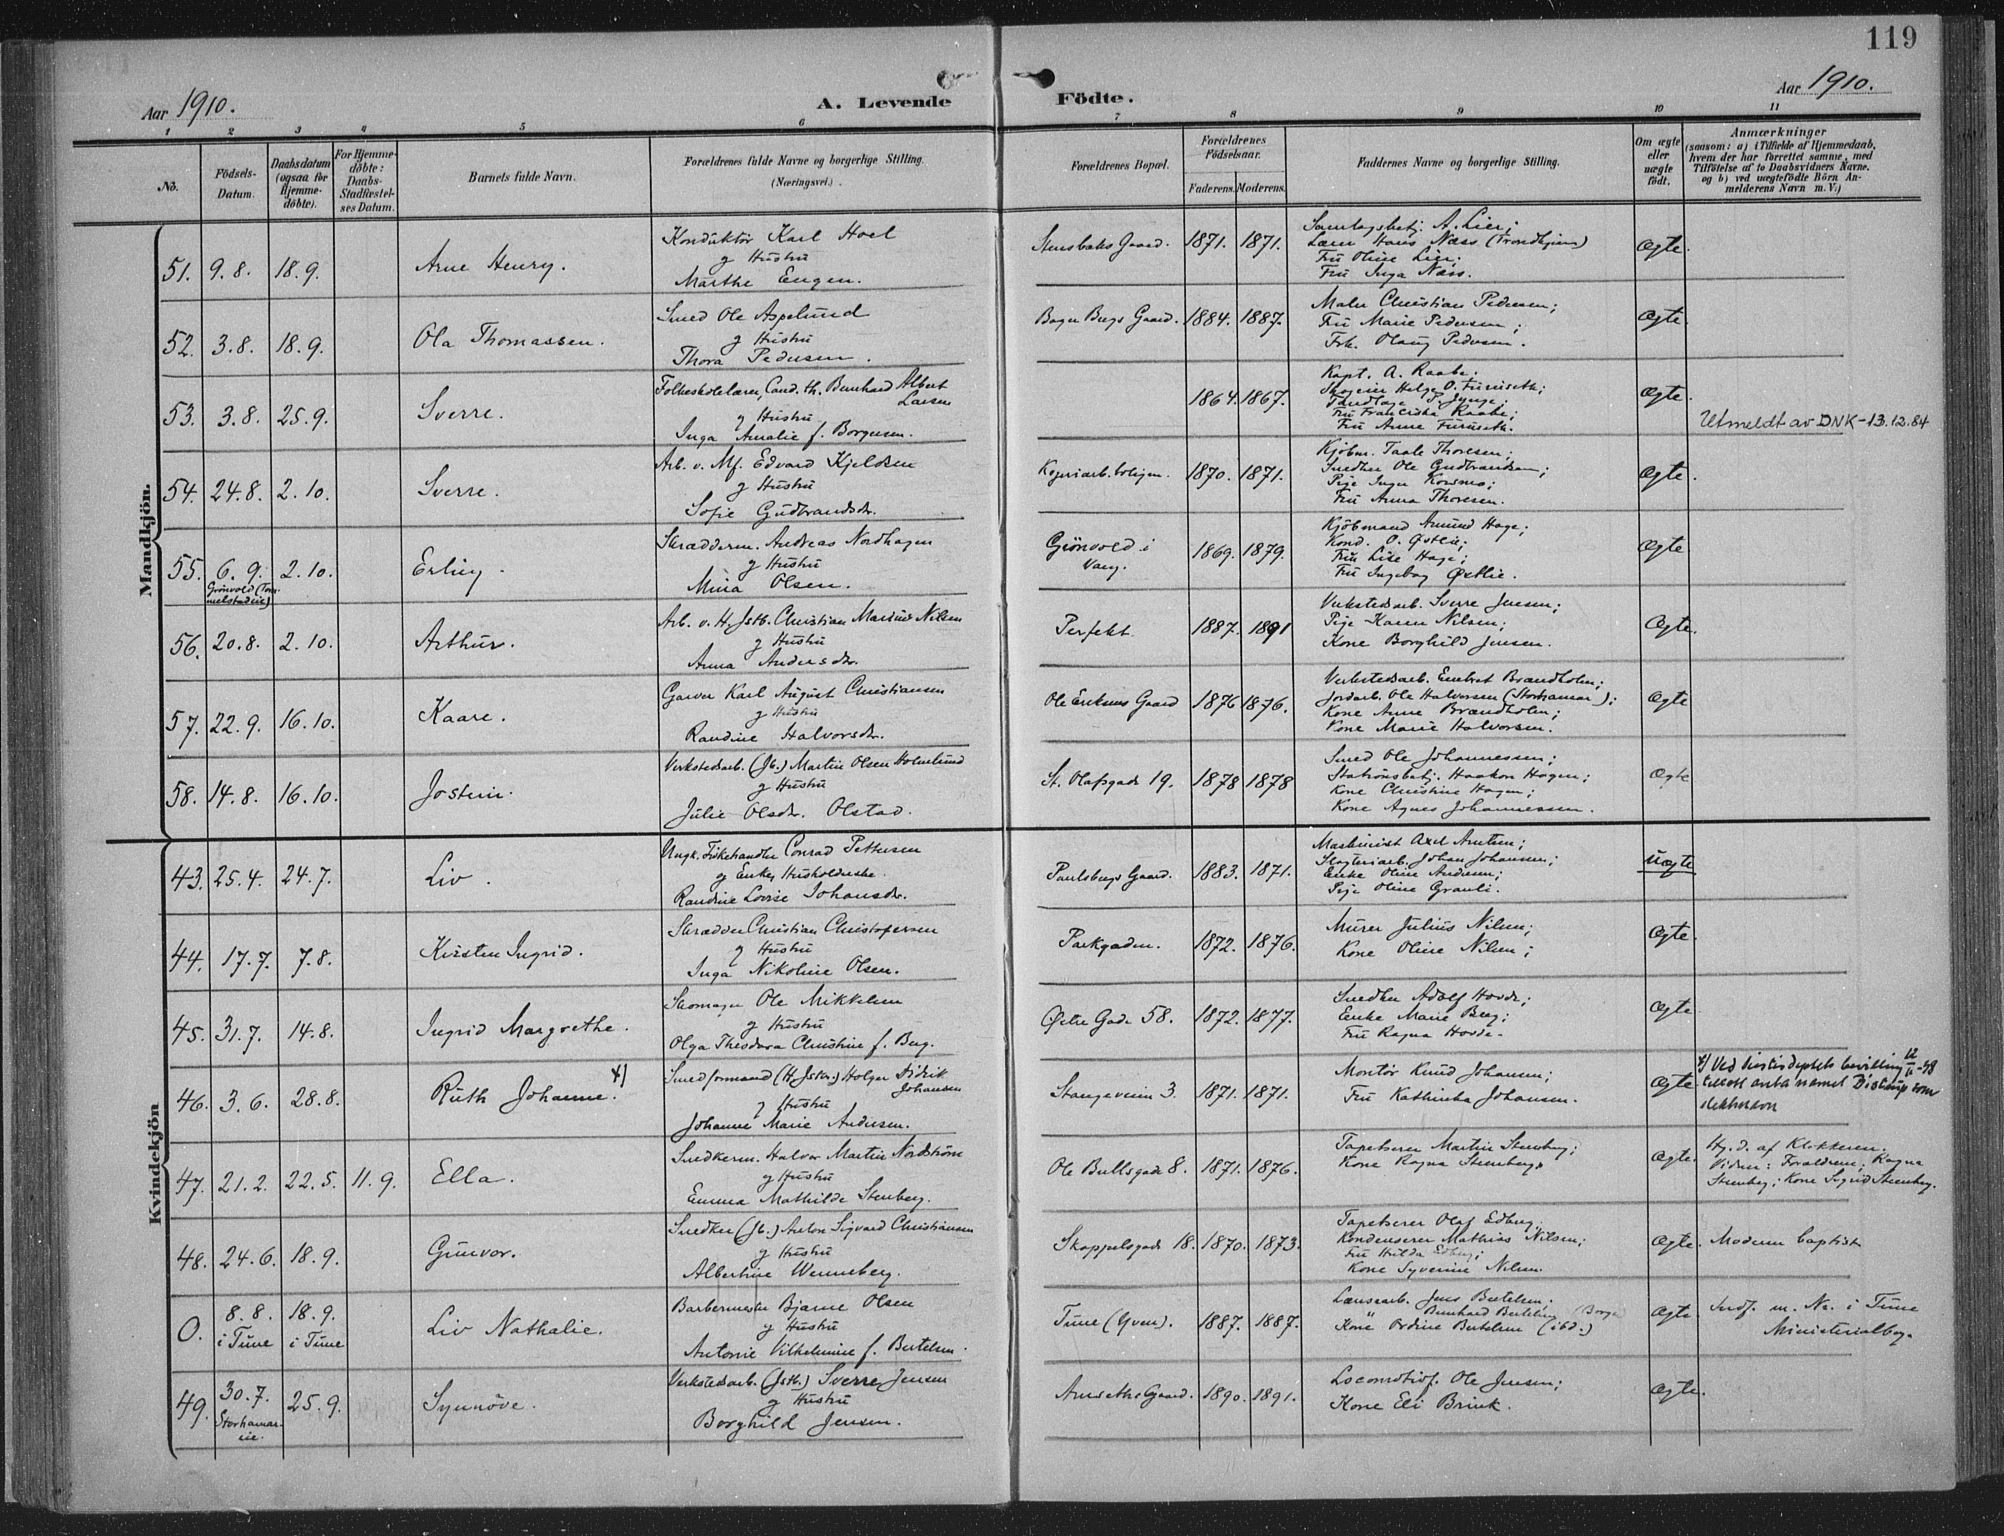 119
Aar 1910.
A. Levende Födte.
Aar 1910.
1 2 3 4 5 6 7 8 9 10 11
No.
Födsels-Datum.
Daabsdatum (ogsaa for Hjemme-döbte).
For Hjemme-döbte: Daabs-Stadfæstel-ses Datum.
Barnets fulde Navn.
Forældrenes fulde Navne og borgerlige Stilling. (Næringsvei.).
Forældrenes Bopæl.
Forældrenes Födselsaar.
Faderens. Moderens.
Faddernes Navne og borgerlige Stilling.
Om ægte eller uægte födt.
Anmærkninger
(saasom: a) i Tilfælde af Hjemmedaab,
hvem der har forrettet samme, med
Tilföielse af to Daabsvidners Navne,
og b) ved uægtefödte Börn An-
melderens Navn m. V.)
Mandkjön.
51. 9.8. 18.9. Arne Henry.
Konduktör Karl Hoel
g Hustru
Marthe Engen.
Stensbaks Gaard. 1871. 1871.
A. Lier;
Hans Næss (Trondhjem)
Fru Oline Lier;
Fru Inga Næss.
Ægte.
52. 3.8. 18.9. Ola Thomassen.
Smed Ole Aspelund
g Hustru
Thora Pedersen.
Bager Bergs Gaard. 1884. 1887.
Maler Christian Pedersen;
Fru Marie Pedersen;
Frk. Olaug Pedersen.
Ægte.
53. 3.8. 25.9. Sverre.
Folkeskolelærer, Cand. th. Bernhard Albert Larsen
g Hustru
Inga Amalie f. Borgersen.
1864. 1867.
Kapt. A. Raabe;
Helge O. Furuseth;
Fru Franciska Raabe;
Fru Anne Furuseth.
Ægte.
Utmeldt av DNK - 13.12.84
54. 24.8. 2.10. Sverre.
Arb. v. Mf. Edvard Kjeldsen
g Hustru
Sofie Gudbrandsdr.
1870. 1871.
Kjöbm. Taale Thoresen;
Snedker Ole Gudbrandsen;
Pige Inga Korsmo;
Fru Anna Thoresen.
Ægte.
55. 6.9. 2.10. Erling.
Grönvold
Skrædderm. Andreas Nordhagen
g Hustru
Mina Olsen.
Grönvold i
Vang.
1869. 1879.
Kjöbmand Amund Hage;
Kond. O. Østlie;
Fru Lise Hage;
Fru Ingebog Østlie.
Ægte
56. 20.8. 2.10. Arthur.
Arb. v. H. Jstb. Christian Marius Nilsen
g Hustru
Anna Andersdr.
Perfekt. 1887. 1891
Verkstedsarb. Sverre Jensen;
Pige Karen Nilsen;
Kone Borghild Jensen.
Ægte.
57. 22.9. 16.10. Kaare.
Garver Karl August Christiansen
g Hustru
Randine Halvorsdr.
Ole Eriksens Gaard 1876 1876.
Verkstedsarb. Embret Brændholen;
Jordarb. Ole Halvorsen (Storhamar);
Kone Anne Brændholen;
Kone Marie Halvorsen.
Ægte
58. 14.8. 16.10. Jostein.
Verkstedsarb. (Jb.) Martin Olsen Holmlund
g Hustru
Julie Olsdr. Olstad.
St. Olafsgade 19. 1878 1878
Smed Ole Johannessen;
Stationsbetj. Haakon Hagen;
Kone Christine Hagen;
Kone Agnes Johannessen.
Ægte
Kvindekjön
43. 25.4. 24.7. Liv.
Ungk. Fiskehandler Conrad Pettersen
g Enke, Husholderske
Randine Lovise Johansdr.
Paulsbergs Gaard. 1883. 1871.
Maskinist Axel Arntsen;
Slagteriarb. Johan Johansen;
Enke Oline Andersen;
Pige Oline Granli.
Uægte
44. 17.7. 7.8. Kirsten Ingrid.
Skrædder Christian Christofersen
g Hustru
Inga Nikoline Olsen.
Parkgaden. 1872. 1876.
Murer Julius Nilsen;
Kone Oline Nilsen;
Ægte.
45. 31.7. 14.8. Ingrid Margrethe.
Skomager Ole Mikkelsen
g Hustru
Olga Theodora Christine f. Berg.
Østre Gade 58. 1872. 1877.
Snedker Adolf Hovde;
Enke Marie Berg;
Fru Ragna Hovde.
Ægte.
46. 3.6. 28.8. Ruth Johanne. x)
Smedformand (H. Jstb.) Holger Didrik Johansen
g Hustru
Johanne Marie Andersen.
Stangeveien 3. 1871. 1871.
Montör Knud Johansen;
Fru Kathinka Johansen.
Ægte.
x) Ved bevilling
tillatt anta namet Distrup som
slektsnavn
47. 21.2. 22.5. 11.9. Ella.
Snedkerm. Halvor Martin Nordström
g Hustru
Emma Mathilde Stenberg.
Ole Bullsgade 8. 1871. 1876.
Tapetserer Martin Stenberg;
Kone Ragna Stenberg.
Ægte.
Hj.d. af Klokkeren.
Vidner: Forældrene; Ragna
Stenberg; Kone Sigrid Stenberg.
48. 24.6. 18.9. Gunvor.
Snedker (Jb.) Anton Sigvard Christiansen
g Hustru
Albertine Wenneberg.
Skappelsgade 18. 1870. 1873.
Tapetserer Olaf Edberg;
Kondenserer Mathias Nilsen;
Fru Hilda Edberg;
Kone Syverine Nilsen.
Ægte.
Moderen baptist
0. 8.8. i Tune 18.9. i Tune Liv Nathalie.
Barbermester Bjarne Olsen
g Hustru
Antonie Vilhelmine f. Bertelsen.
Tune (Yven). 1887. 1887.
Lænsearb. Jens Bertelsen;
" Bernhard Bertelsen (Borge)
Kone Ordine Bertelsen (ibd.)
Ægte
Indf. m. No. i Tune
Ministerialbog.
49. 30.7. 25.9. Synnöve.
Storhamar-
eie.
Verkstedsarb. (Jstb.) Sverre Jensen
g Hustru
Borghild Jensen.
Amseths Gaard. 1890. 1891.
Locomotivf. Ole Jensen;
Kone Eli Brink.
Ægte.